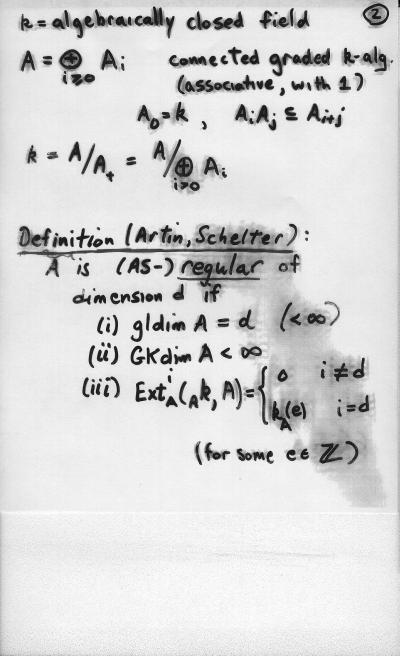 ②
k = algebraically closed field
A = ⊕ A_i connected graded k-alg.
i≥0 (associative, with 1)
A_0 = k , A_i A_j ⊆ A_{i+j}
k = A/A_+ = A/⊕ A_i
i>0
Definition (Artin, Schelter):
A is (AS-) regular of
dimension d if
(i) gldim A = d (<∞)
(ii) GKdim A < ∞
(iii) Ext^i_A(_A k, A) = { 0 i ≠ d
k_A(e) i = d
(for some e ∈ ℤ)